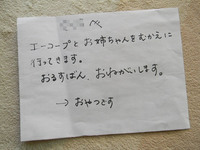 へ
エーコープと お姉ちゃんをむかえに
行ってきます。
おるすばん、おねがいします。
→ おやつです